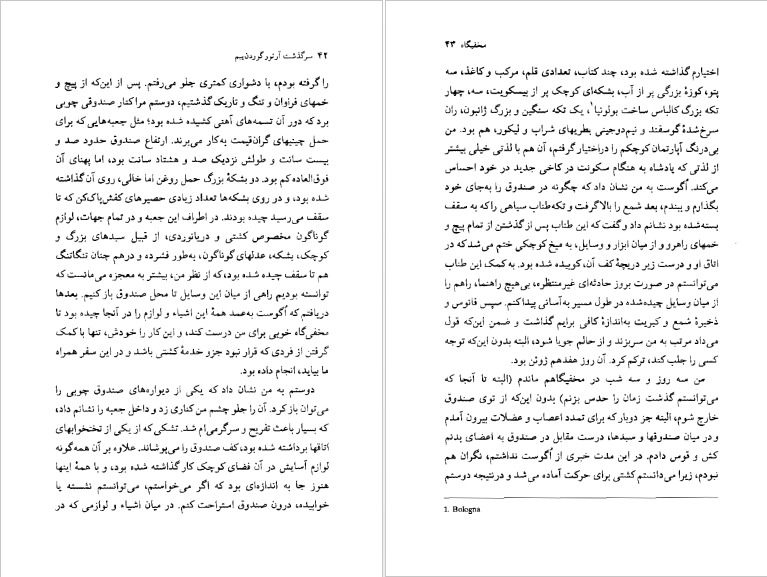 ۴۲ سرگذشت آرتور گوردن‌پیم
را گرفته بودم، با دشواری کمتری جلو می‌رفتم. پس از این‌که از پیچ و
خمهای فراوان و تنگ و تاریک گذشتیم، دوستم مرا کنار صندوقی چوبی
برد که دور آن تسمه‌های آهنی کشیده شده بود؛ مثل جعبه‌هایی که برای
حمل چینیهای گران‌قیمت به‌کار می‌برند. ارتفاع صندوق حدود صد و
بیست سانت و طولش نزدیک صد و هشتاد سانت بود، اما پهنای آن
فوق‌العاده کم بود. دو بشکهٔ بزرگ حمل روغن اما خالی، روی آن گذاشته
شده بود، و در روی بشکه‌ها تعداد زیادی حصیرهای کفش‌پاک‌کن که تا
سقف می‌رسید چیده بودند. در اطراف این جعبه و در تمام جهات، لوازم
گوناگون مخصوص کشتی و دریانوردی، از قبیل سبدهای بزرگ و
کوچک، بشکه، عدلهای گوناگون، به‌طور فشرده و درهم چنان تنگاتنگ
هم تا سقف چیده شده بود، که از نظر من، بیشتر به معجزه می‌مانست که
توانسته بودیم راهی از میان این وسایل تا محل صندوق باز کنیم. بعدها
دریافتم که آگوست به‌عمد همهٔ این اشیاء و لوازم را در آنجا چیده بود تا
مخفی‌گاه خوبی برای من درست کند، و این کار را خودش، تنها با کمک
گرفتن از فردی که قرار نبود جزو خدمهٔ کشتی باشد و در این سفر همراه
ما بیاید، انجام داده بود.
دوستم به من نشان داد که یکی از دیواره‌های صندوق چوبی را
می‌توان باز کرد. آن را جلو چشم من کناری زد و داخل جعبه را نشانم داد،
که بسیار باعث تفریح و سرگرمی‌ام شد. تشکی که از یکی از تختخوابهای
اتاقها برداشته شده بود، کف صندوق را می‌پوشاند. علاوه بر آن همه‌گونه
لوازم آسایش در آن فضای کوچک کار گذاشته شده بود، و با همهٔ اینها
هنوز جا به اندازه‌ای بود که اگر می‌خواستم، می‌توانستم نشسته یا
خوابیده، درون صندوق استراحت کنم. در میان اشیاء و لوازمی که در
مخفیگاه ۴۳
اختیارم گذاشته شده بود، چند کتاب، تعدادی قلم، مرکب و کاغذ، سه
پتو، کوزهٔ بزرگی پر از آب، بشکه‌ای کوچک پر از بیسکویت، سه، چهار
تکه بزرگ کالباس ساخت بولونیا۱، یک تکه سنگین و بزرگ ژانبون، ران
سرخ‌شدهٔ گوسفند و نیم‌دوجینی بطریهای شراب و لیکور، هم بود. من
بی‌درنگ آپارتمان کوچکم را دراختیار گرفتم، آن هم با لذتی خیلی بیشتر
از لذتی که پادشاه به هنگام سکونت در کاخی جدید در خود احساس
می‌کند. آگوست به من نشان داد که چگونه در صندوق را به‌جای خود
بگذارم و ببندم، بعد شمع را بالا گرفت و تکه‌طناب سیاهی را که به سقف
بسته‌شده بود نشانم داد و گفت که این طناب پس از گذشتن از تمام پیچ و
خمهای راهرو و از میان ابزار و وسایل، به میخ کوچکی ختم می‌شد که در
اتاق او و درست زیر دریچهٔ کف آن، کوبیده شده بود. به کمک این طناب
می‌توانستم در صورت بروز حادثه‌ای غیرمنتظره، بی‌هیچ راهنما، راهم را
از میان وسایل چیده‌شده در طول مسیر به‌آسانی پیدا کنم. سپس فانوس و
ذخیرهٔ شمع و کبریت به‌اندازهٔ کافی برایم گذاشت و ضمن این‌که قول
می‌داد مرتب به من سربزند و از حالم جویا شود، البته بدون این‌که توجه
کسی را جلب کند، ترکم کرد. آن روز هفدهم ژوئن بود.
من سه روز و سه شب در مخفیگاهم ماندم (البته تا آنجا که
می‌توانستم گذشت زمان را حدس بزنم) بدون این‌که از توی صندوق
خارج شوم، البته جز دوبار که برای تمدد اعصاب و عضلات بیرون آمدم
و در میان صندوقها و سبدها، درست مقابل در صندوق به اعضای بدنم
کش و قوس دادم. در این مدت خبری از آگوست نداشتم، نگران هم
نبودم، زیرا می‌دانستم کشتی برای حرکت آماده می‌شد و درنتیجه دوستم
1. Bologna